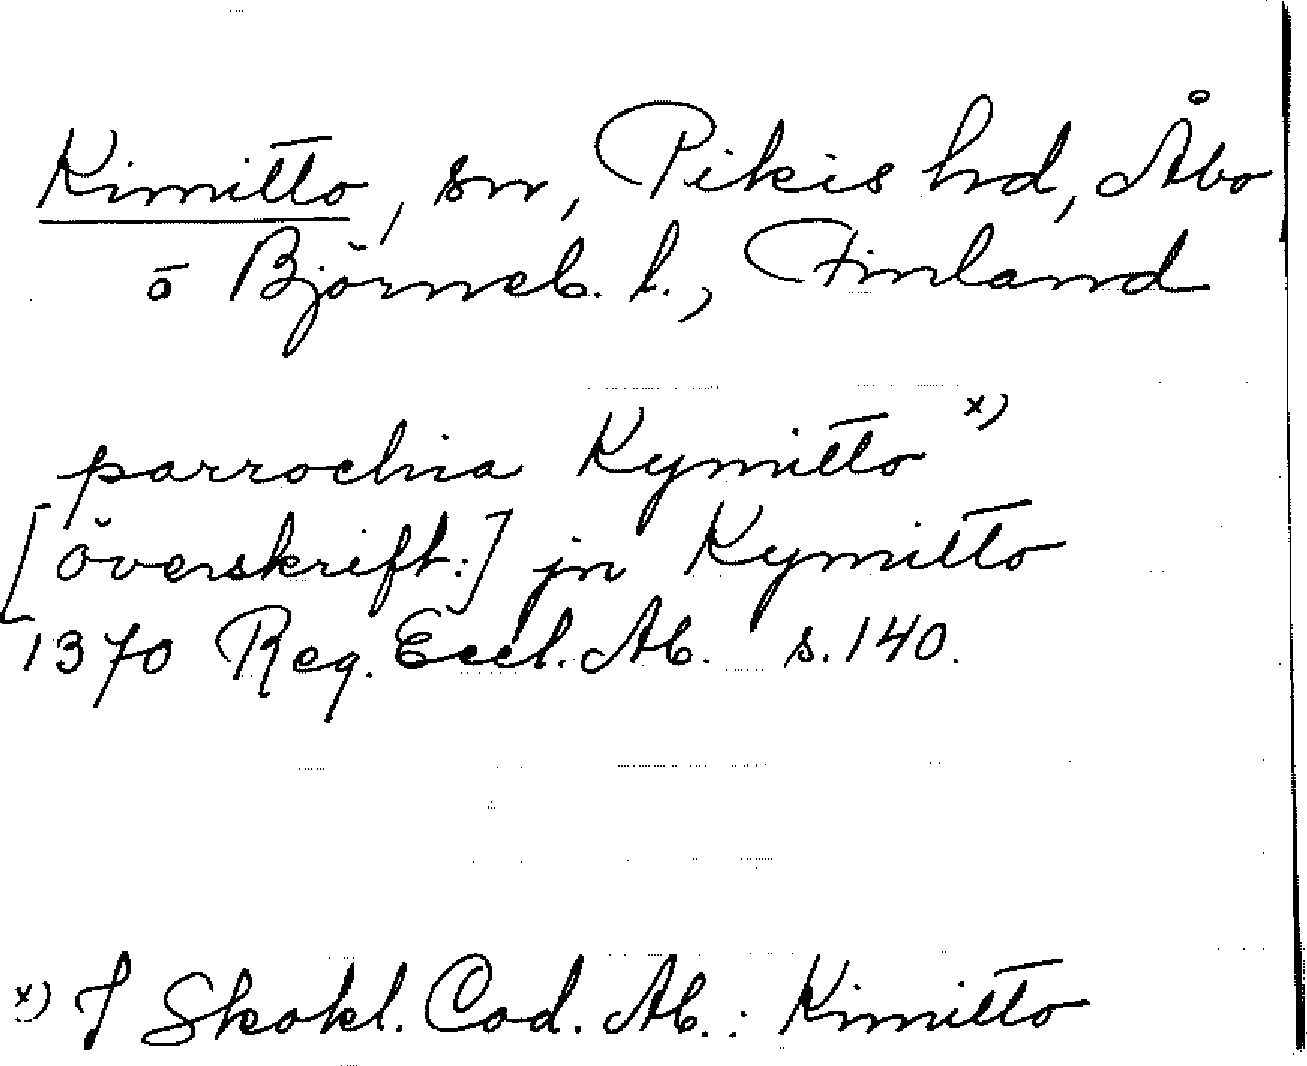 Kimitto, sn, Pikis hd, Åbo
o Björneb. l., Finland
parrochia Kymitto x)
[överskrift:] jn Kymitto
1370 Reg. Eccl. Ab. s. 140.
x) I Skokl. Cod. Ab.: Kimitto